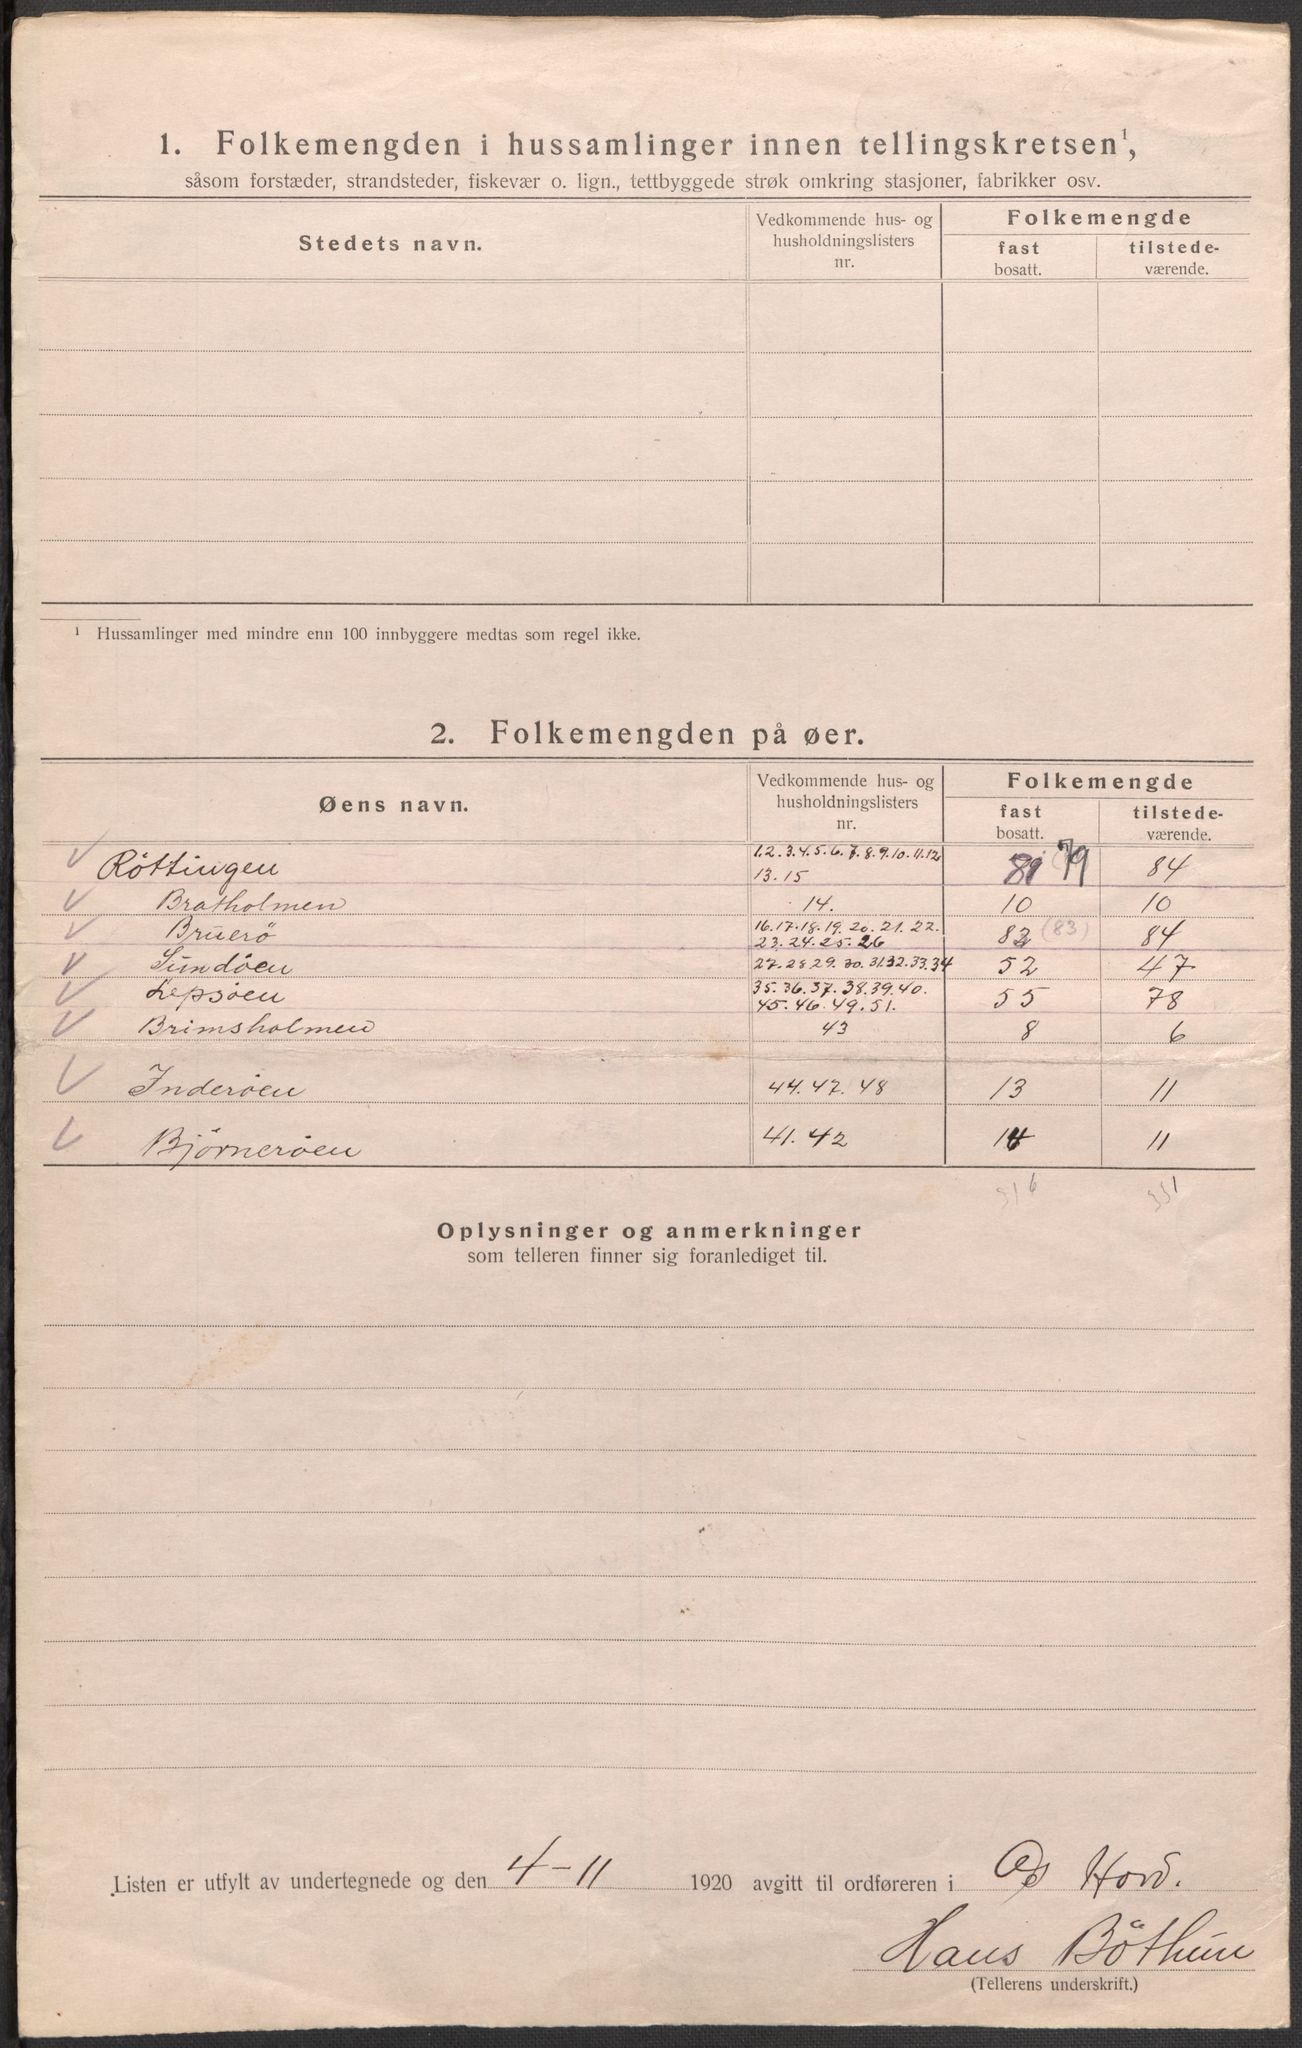 1. Folkemengden i hussamlinger innen tellingskretsen¹,
såsom forstæder, strandsteder, fiskevær o. lign., tettbyggede strøk omkring stasjoner, fabrikker osv.
Stedets navn.
Vedkommende hus- og
husholdningslisters
nr.
Folkemengde
fast
bosatt.
tilstede-
værende.
¹ Hussamlinger med mindre enn 100 innbyggere medtas som regel ikke.
2. Folkemengden på øer.
Øens navn.
Vedkommende hus- og
husholdningslisters
nr.
Folkemengde
fast
bosatt.
tilstede-
værende.
Röttingen 1.2.3.4.5.6.7.8.9.10.11.12
13.15 79 84
Bratholmen 14. 10 10
Bruerö 16.17.18.19.20.21.22.
23.24.25.26 82 (83) 84
Sundöen 27.28 29.30.31.32.33.34 52 47
Lepsöen 35.36.37.38.39.40.
45.46.49.51. 55 78
Brimsholmen 43 8 6
Inderöen 44.47.48 13 11
Björneröen 41.42 14 11
316 331
Oplysninger og anmerkninger
som telleren finner sig foranlediget til.
Listen er utfylt av undertegnede og den 4-11 1920 avgitt til ordføreren i Os Hord.
Hans Böthun
(Tellerens underskrift.)